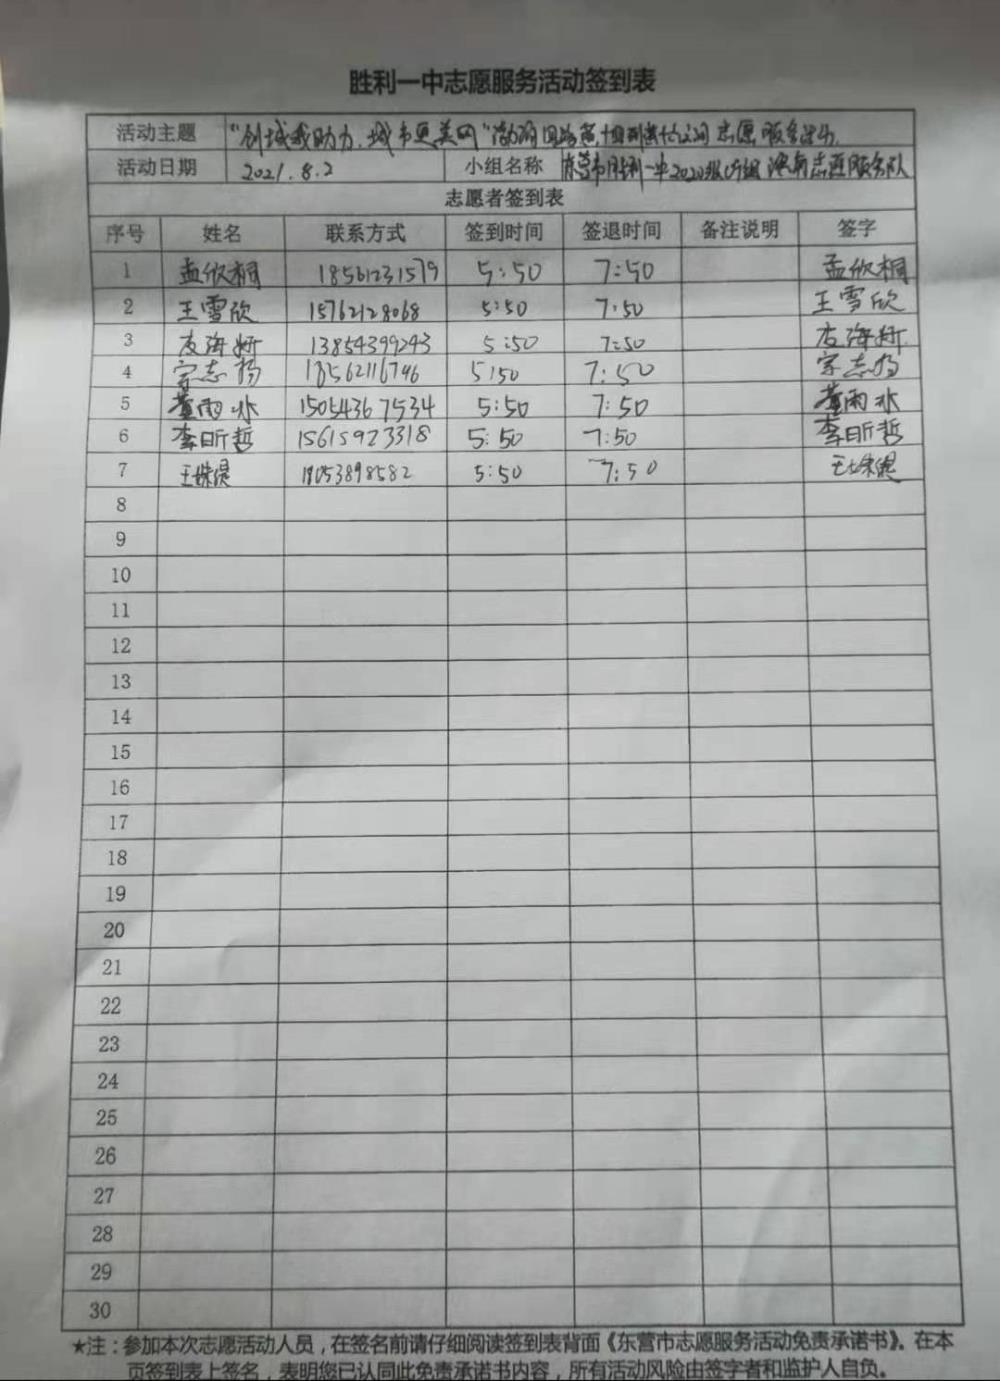 胜利一中志愿服务活动签到表
活动主题 "创城我助力,城市更美好" 志愿服务活动.
活动日期 2021.8.2 小组名称 东营市胜利一中2020级 志愿服务队
志愿者签到表
序号 姓名 联系方式 签到时间 签退时间 备注说明 签字
1 孟欣桐 18561231579 5:50 7:50 孟欣桐
2 王雪欣 15762128068 5:50 7:50 王雪欣
3 海妍 13854399243 5:50 7:50 海妍
4 宗志扬 18562116746 5:50 7:50 宗志扬
5 董雨水 15054367534 5:50 7:50 董雨水
6 李昕哲 15615923318 5:50 7:50 李昕哲
7 王姝缇 18053898582 5:50 7:50 王姝缇
8
9
10
11
12
13
14
15
16
17
18
19
20
21
22
23
24
25
26
27
28
29
30
★注:参加本次志愿活动人员,在签名前请仔细阅读签到表背面《东营市志愿服务活动免责承诺书》。在本
页签到表上签名,表明您已认同此免责承诺书内容,所有活动风险由签字者和监护人自负。